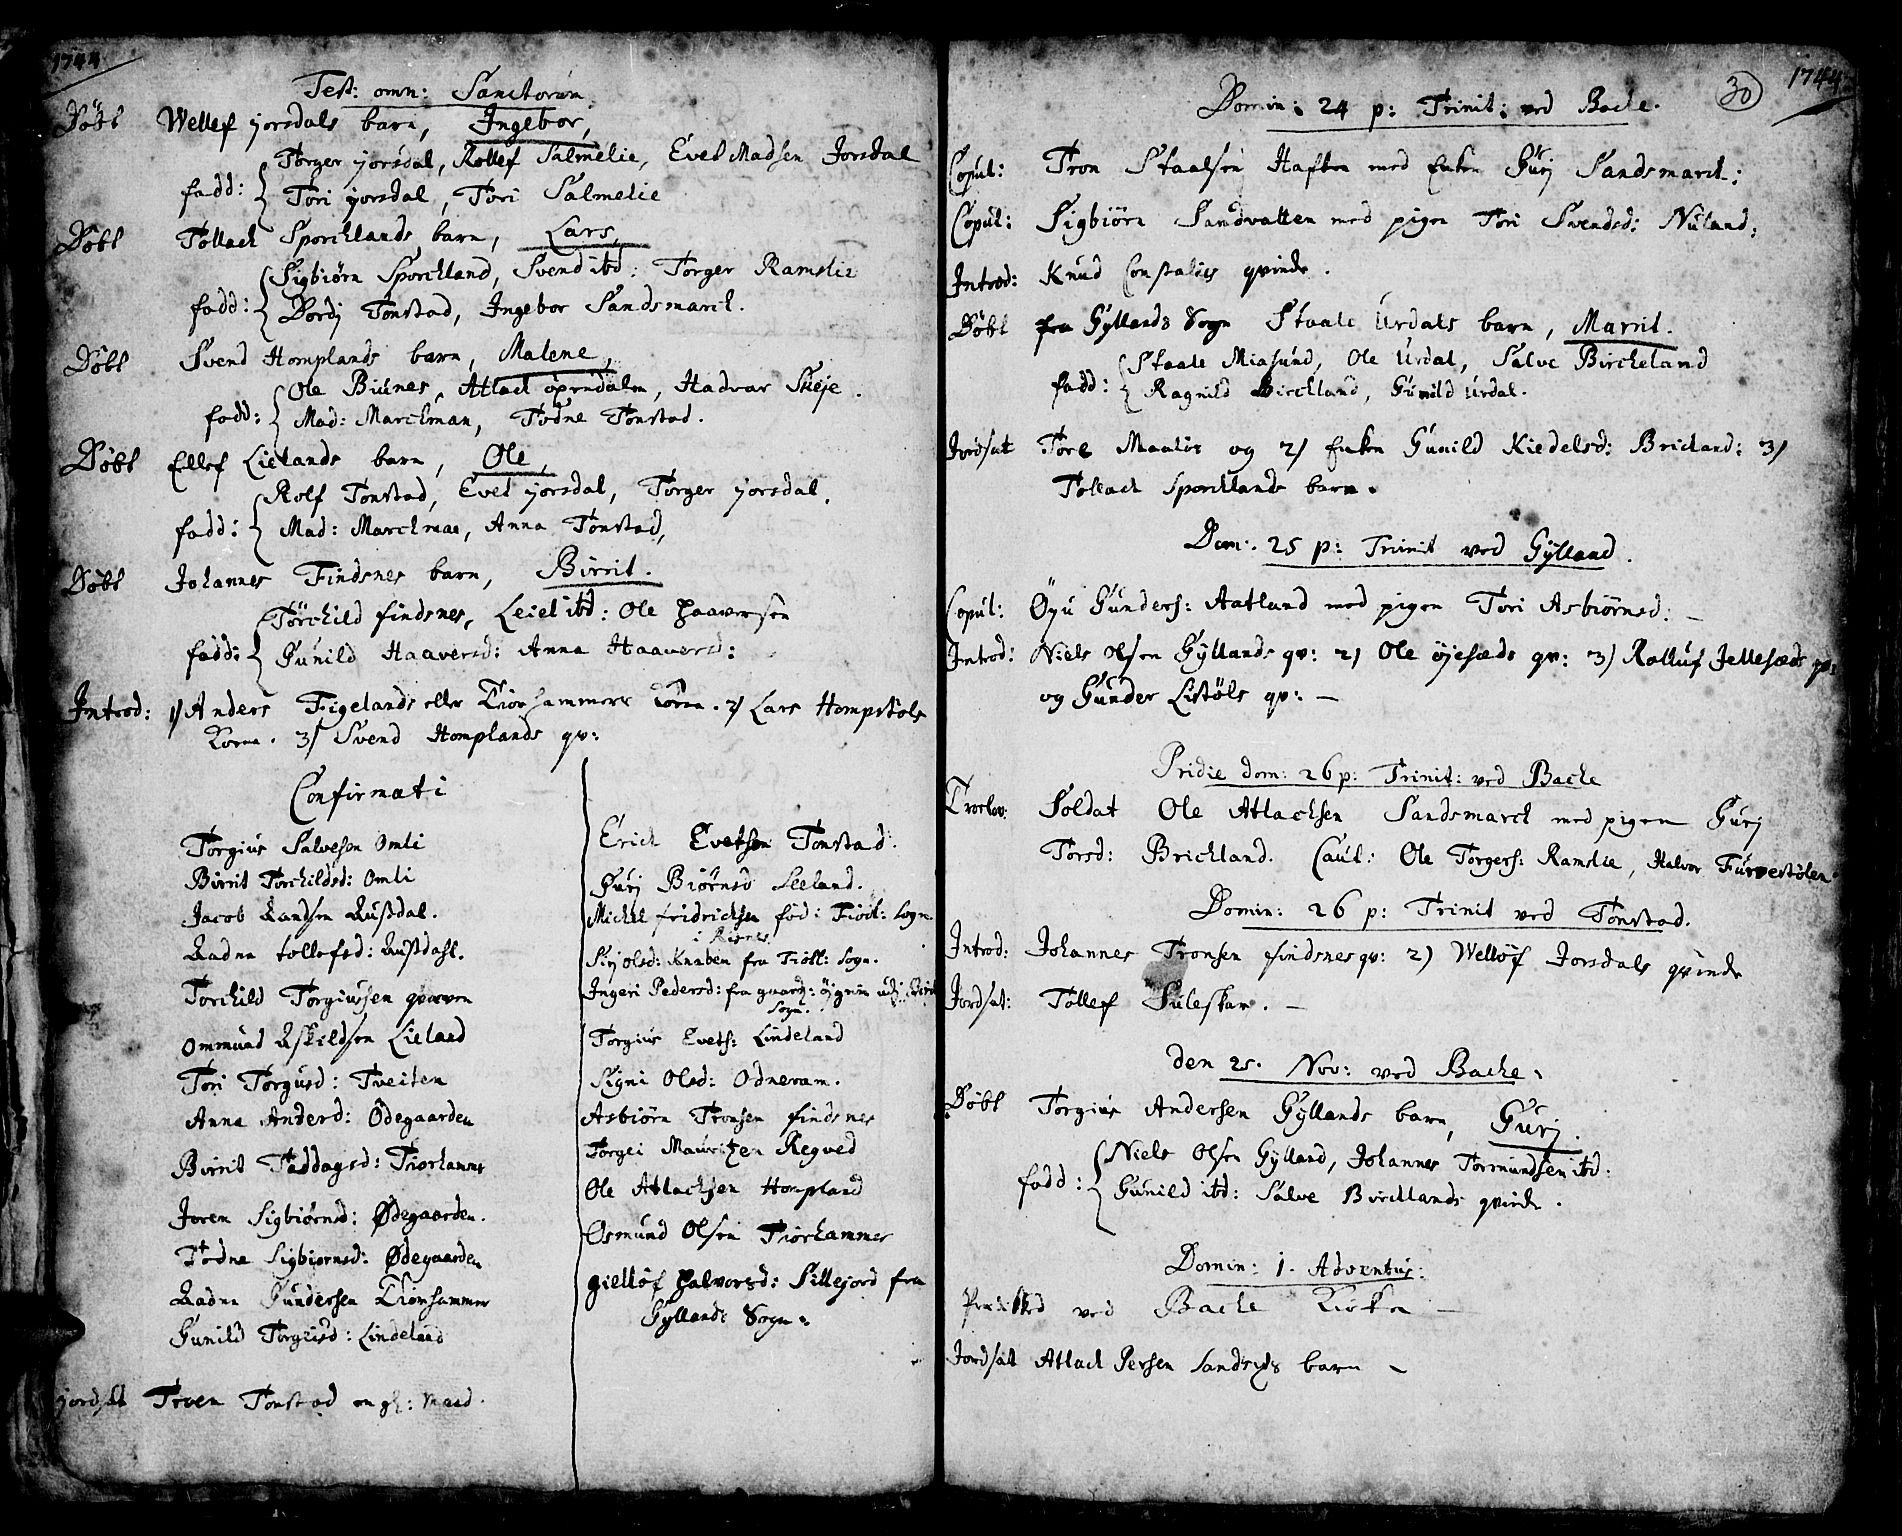 1744
Fest: omn: Sanctorum
Döbt Wellef jorsdals barn, Ingebor,
Torger jorsdal, Rollef Salmelie, Evet Madsen Jorsdal
fadd: Tori jorsdal, Tori Salmelie
Döbt Tollach Sporcklands barn, Lars,
Sigbiörn Sporckland, Svend ibd: Torger Ramslie
fadd: Dordj Tonstad, Ingebor Sandsmarck.
Döbt Svend Homplands barn, Malene,
Ole Biünes, Atlack öpendalen, Hadvar Skeje.
fadd: Mad: Marckman, Todne Tonstad.
Döbt Ellef Lielands barn, Ole,
Rolf Tonstad, Evet jorsdal, Torger jorsdal.
fadd: Mad: Marckman, Anna Tonstad,
Döbt Johannes Findsnes barn, Birrit.
Törchild findsnes, Leiel ibd: Ole Haaversen
fadd: Gunild Haaversd: Anna Haaversd:
Introd: 1/ Anders Figelands eller Tiörhammers kone. 2/ Lars Hompstöls
Kone. 3/ Svend Homplands qv:
Confirmati
Torgiüs Salvesen Omli
Birrit Torchildsd: Omli
Jacob Aandsen Austdal.
Aadne tollefsd: Austdahl.
Torchild Torgiussen qvæven
Ommund Askildsen Lieland
Tori Torgusd: Tveiten
Anna Andersd: Ödegaarden
Birrit Taddagsd: Tiorhammer
Joren Sigbiörnsd: Ødegaarden.
Todne Sigbiornsd: Ødegaarden
Aadne Gundersen Tiörhammer
Gunild Torgiusd: Lindeland
Erick Evetsen Tonstad:
Gurj Biörnsd Seeland.
Michel fridrichsen föd: Fiöt: sogn
i Risnes
Sirj olsd: Knaben fra Fiötl: sogn.
Ingeri Pedersd: fra guard: öignn udj
Sogn.
Torgius Evets: Lindeland
Signi Olsd: Odneram.
Asbiörn Tronsen findsnes
Torgei Mauritzen Regved
Ole Atlachsen Hompland
Osmund Olsen Tiorhammer
giellöf Halvorsd: Sillejord fra
Gyllands Sogn.
jordsat Troen Tonstad en gl: Mand.
30
1744
Domin: 24 p: Trinit: ved Backe.
Copul: Tron Staalsen Haften med Enken Gurj Sandsmarck;
Copul: Sigbiörn Sandvatten med pigen Tori Svendsd: Nuland;
Introd: Knud Constalies qvinde.
Döbt fra Gyllands Sogn Staale Urdals barn, Marrit.
Staale Miasund, Ole Urdal, Salve Birckeland
fadd: Ragnild Birckland, Gunild Urdal.
Jordsat Tore Maaliis og 2/ Enken Gunild Kiedelsd: Brickland: 3/
Tollach Sporcklands barn.
Dom: 25 p: Trinit ved Gylland.
Copul: Öyu Gunders: Aatland med pigen Tori Asbiörnsd: -
Introd: Niels Olsen Gyllands qv: 2/ Ole öjesæds qv: 3/ Rolluf Jellesæds qv:
og Gunder Listöls qv: -
Pridie dom: 26 p: Trinit: ved Backe
Trolov: Soldat Ole Atlachsen Sandsmarck med pigen Gurj
Torsd: Brickland. Caut: Ole Torgers: Ramslie, Halvor Furvestölen
Domin: 26 p: Trinit ved Tonstad.
Introd: Johannes Tronsen findsnes qv: 2) Wellöf Jorsdals qvinde
Jordsat: Tollef Suleskar. -
den 25. Nov: ved Backe.
Döbt Torgius Andersen Gyllands barn, Gurj.
Niels Olsen Gylland, Johannes Tormundsen ibd:
fadd: Gunild ibd: Salve Bircklands qvinde.
Domin: 1. Adventus:
Prædiked ved Backe Kirke -
Jordsat Atlach Persen Sandsyds barn -